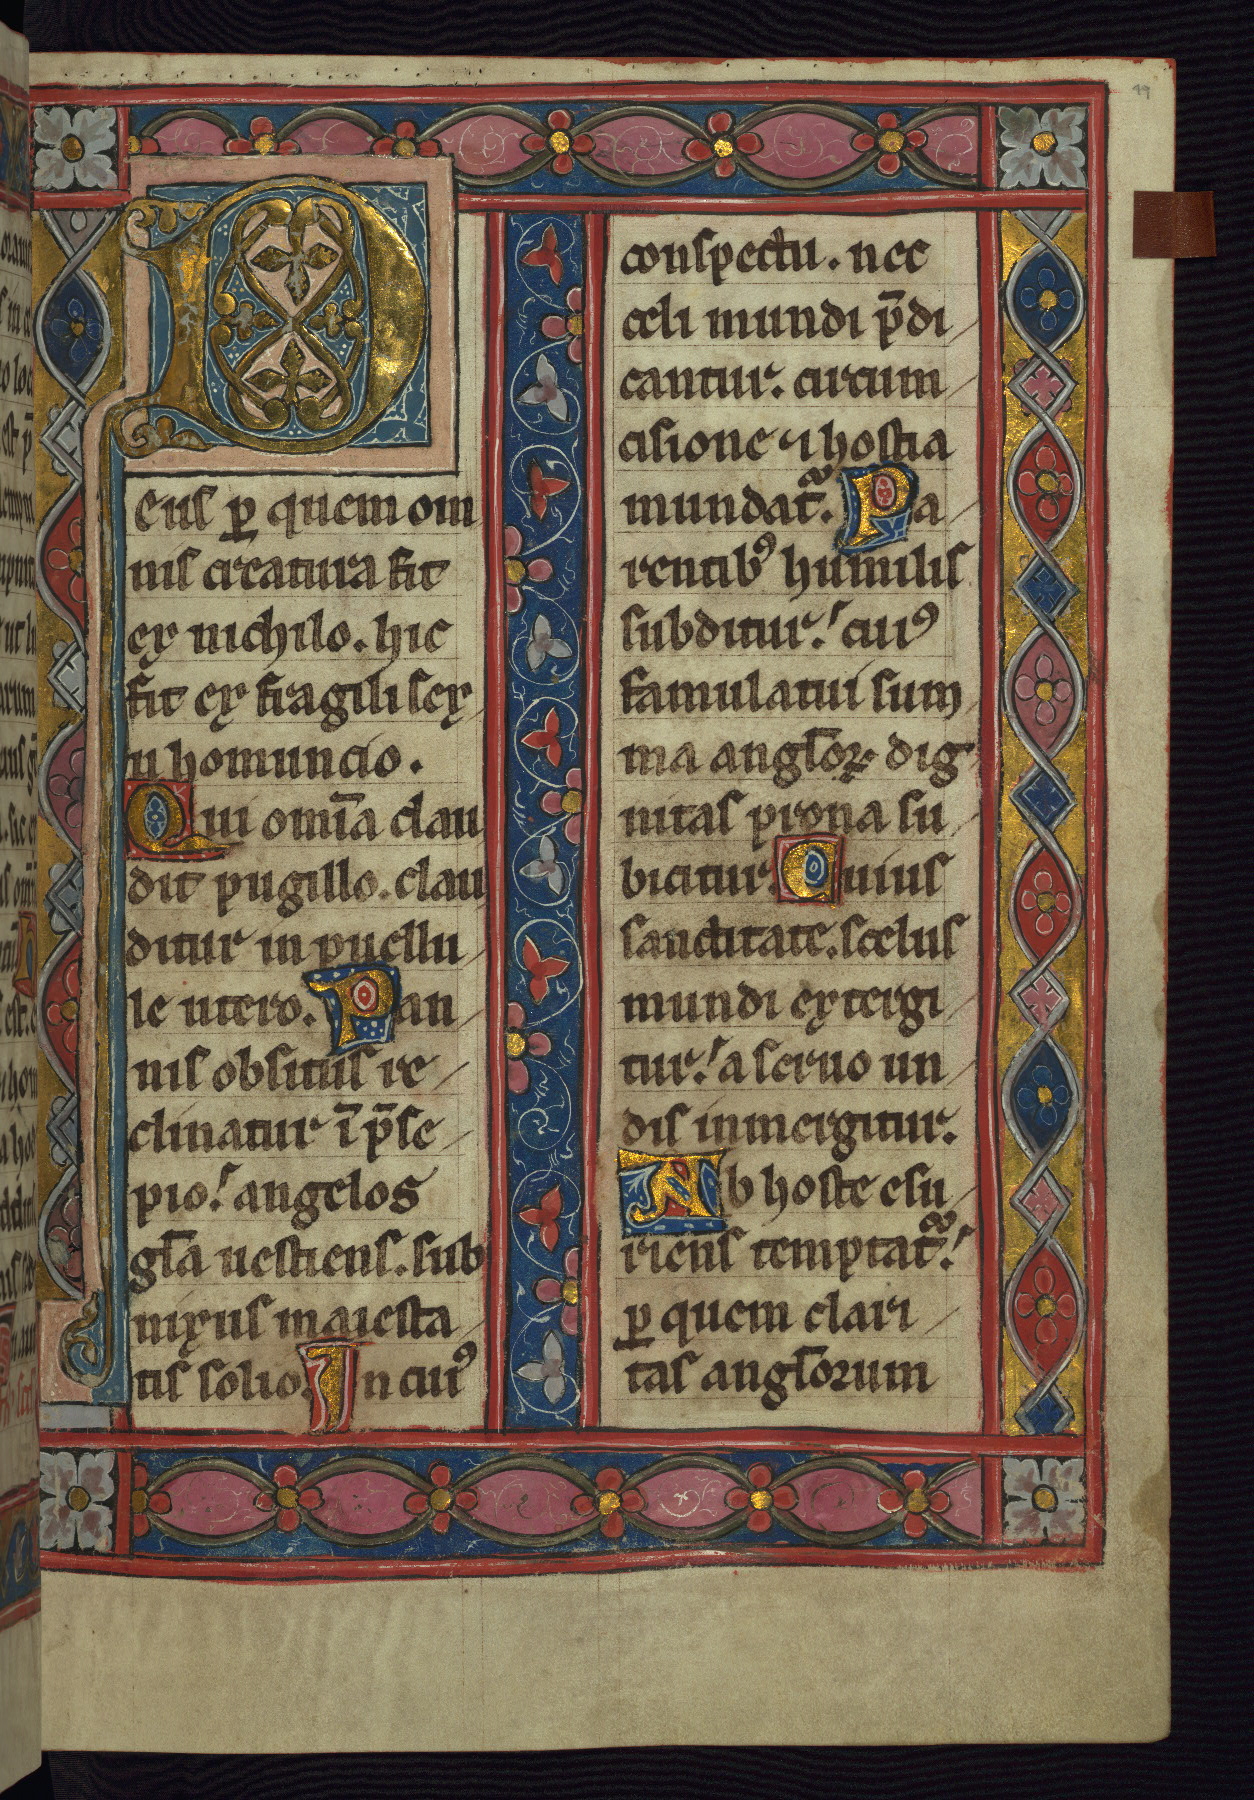 D
eus ꝑ quem om
nis creatura fit
ex nichilo. hic
fit ex fragili sex
u homuncio.
Qui om̄ia clau
dit pugillo. clau
ditur in puellu
le utero. Pan
nis obsitus re
clinatur ī p̄se
pio. angelos
gl̄a uestiens. sub
nixus maiesta
tis solio. In cuiꝰ
conspectu. nec
celi mundi p̄di
cantur. circum
cisione ⁊ hostia
mundat᷑. Pa
rentibꝰ humilis
subditur. cuiꝰ
famulatui sum
ma angl̄oꝝ dig
nitas prona su
bicitur. Cuius
sanctitate. scelus
mundi extergi
tur. a seruo un
dis inmergitur.
Ab hoste esu
riens temptat᷑.
ꝑ quem clari
tas angl̄orum
49